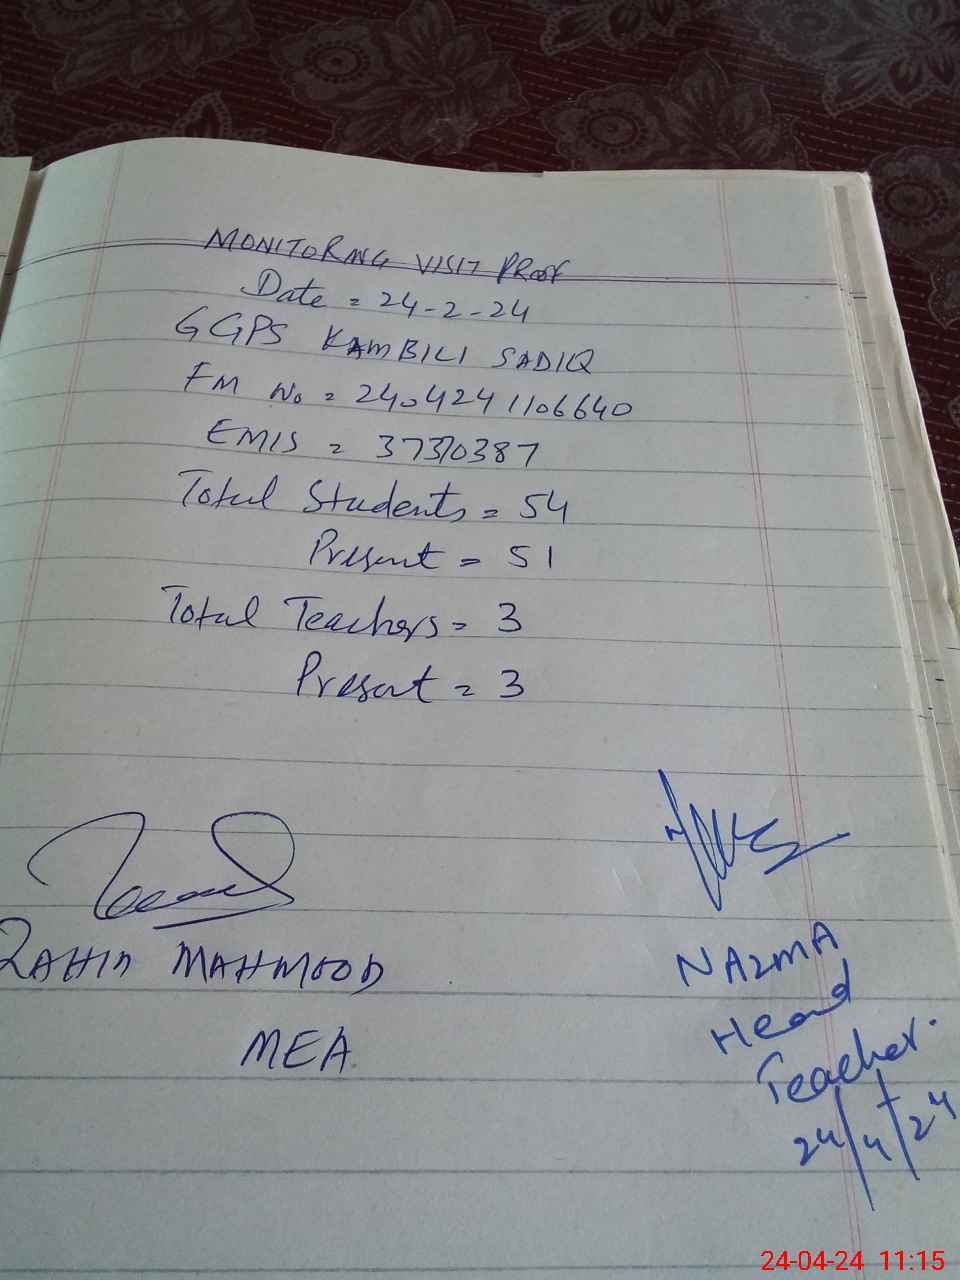 MONITORING VISIT PROOF
Date = 24-2-24
GGPS KAMBILI SADIQ
FM No = 2404241106640
EMIS = 37370387
Total Students = 54
Present = 51
Total Teachers = 3
Present = 3
MAHMOOD
MEA
NAZMA
Head
Teacher.
24/4/24
24-04-24 11:15